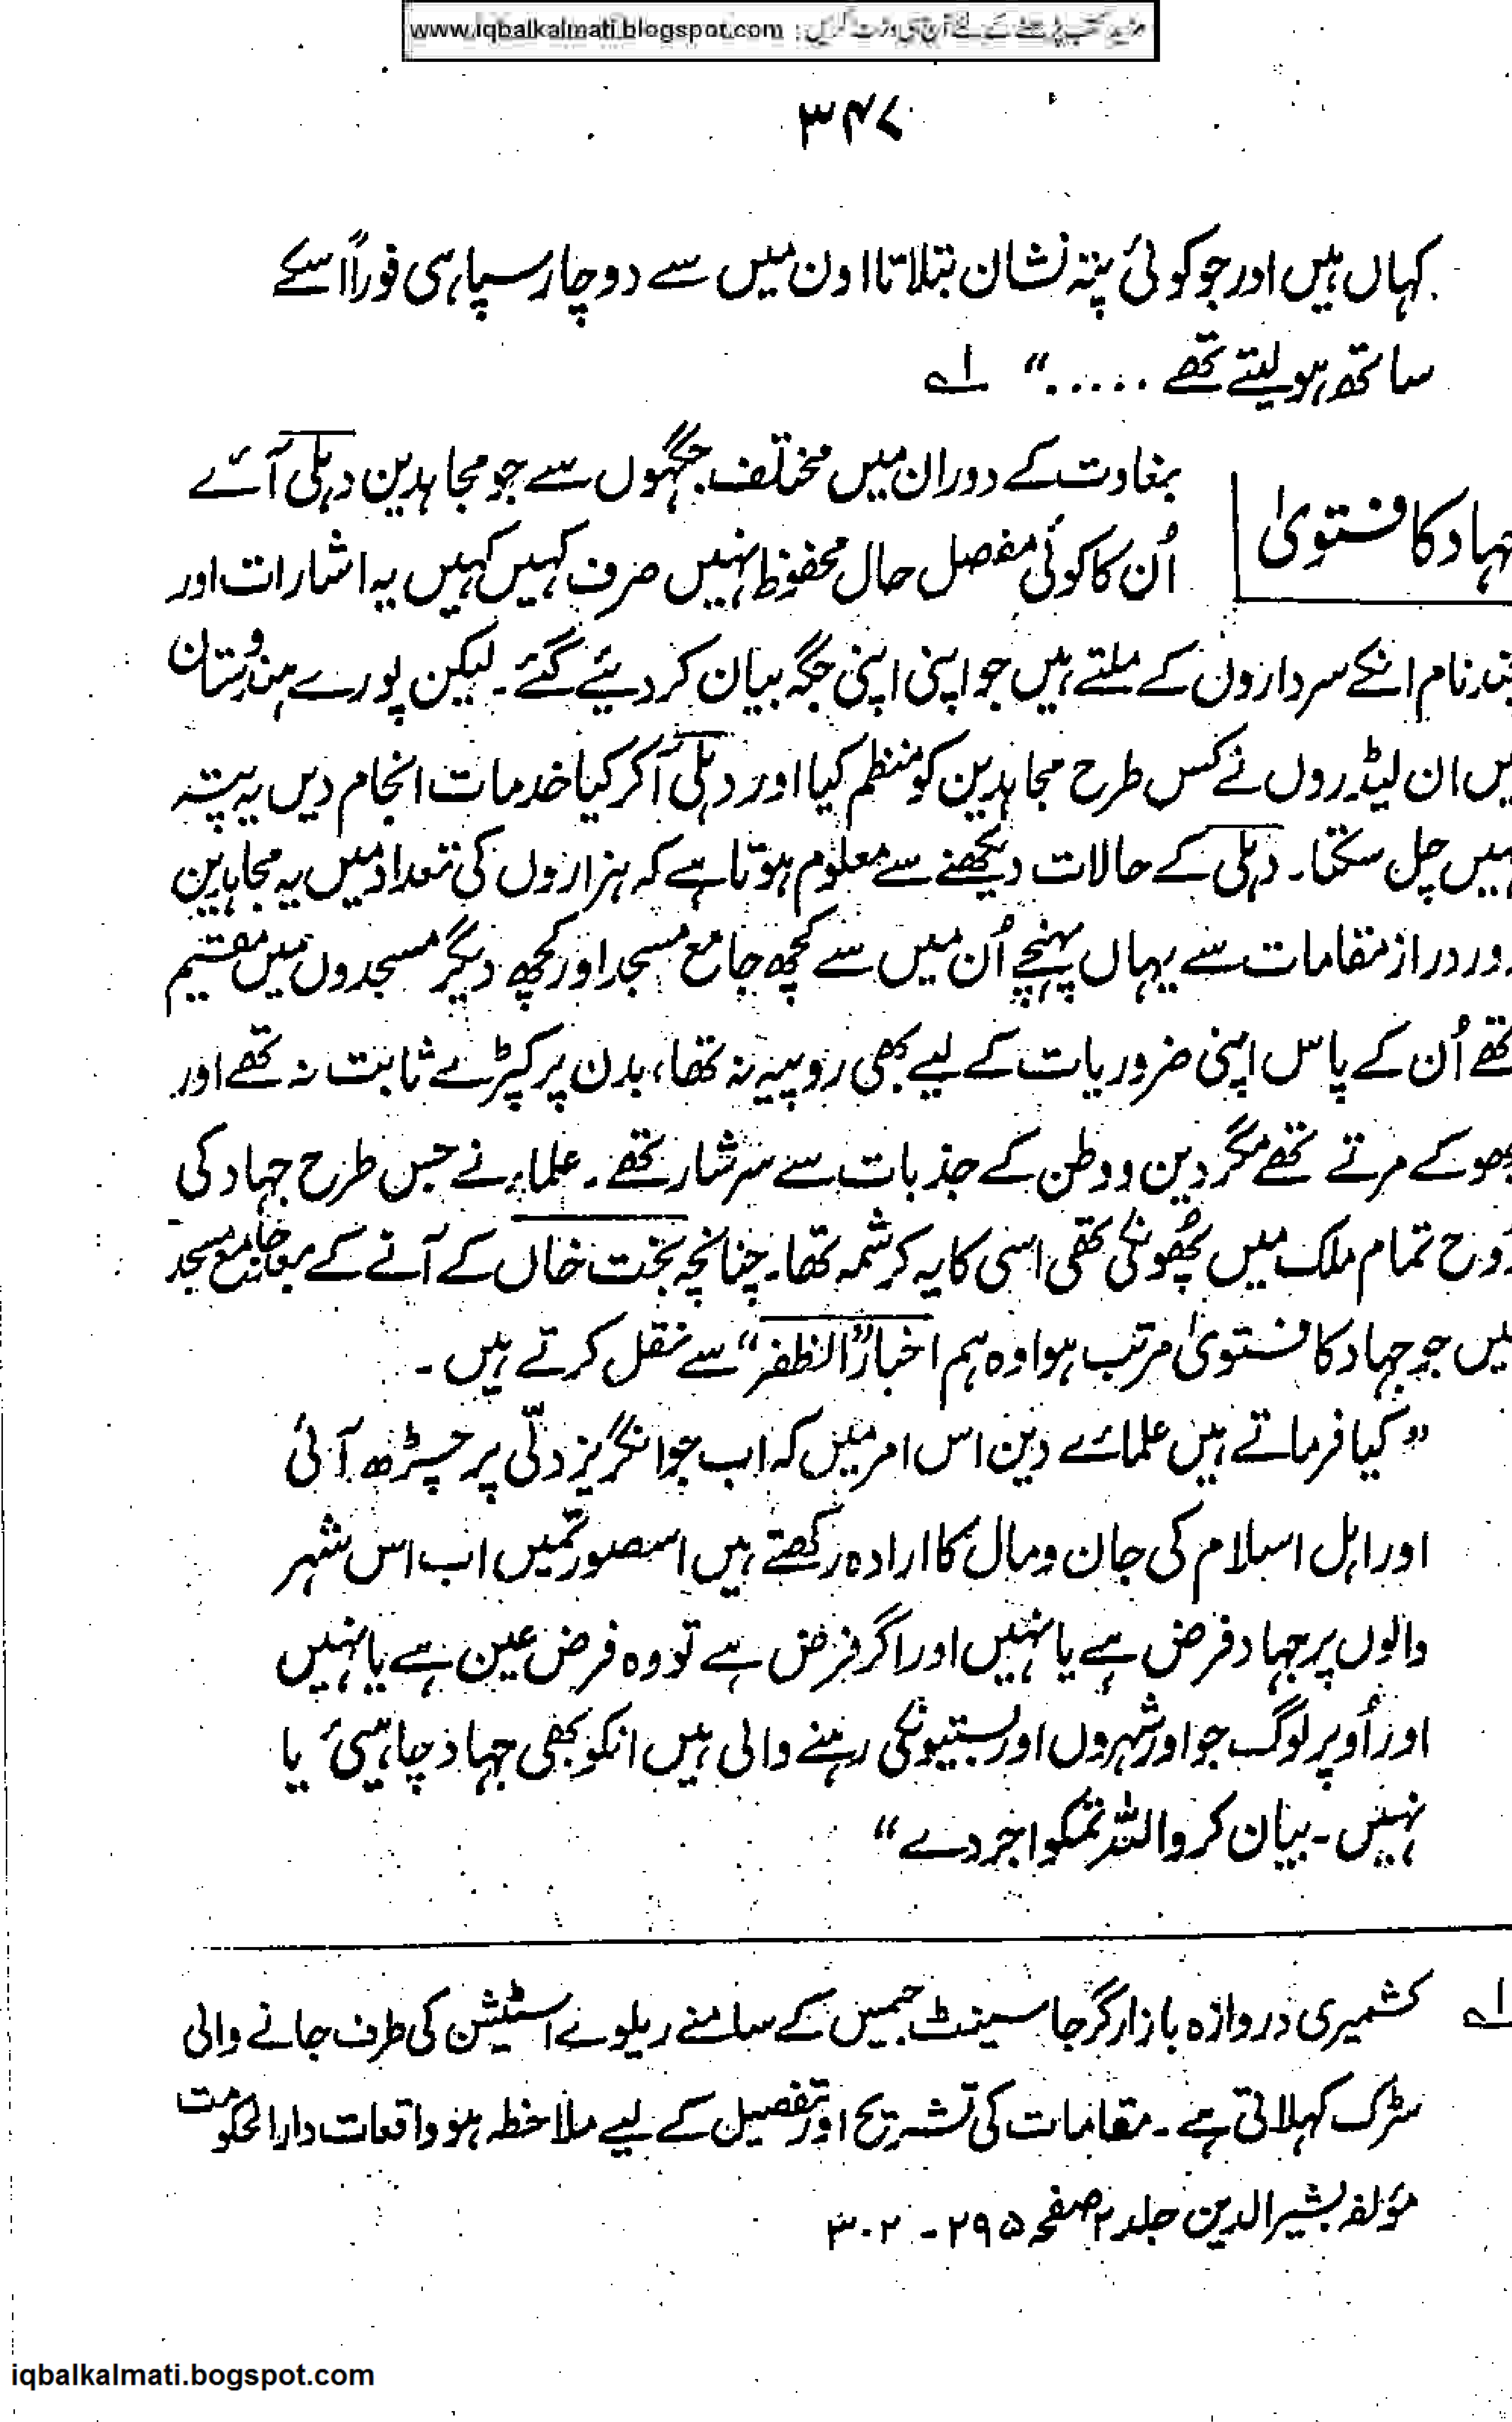 مزید کتب پڑھنے کے لئے آج ہی وزٹ کریں : www.iqbalkalmati.blogspot.com
۳۴۷
کہاں ہیں اور جو کوئی پتہ نشان بتلاتا اون میں سے دو چار سپاہی فوراً اسکے
ساتھ ہو لیتے تھے ....." ؎۱
جہاد کا فتویٰ
بغاوت کے دوران میں مختلف جگہوں سے جو مجاہدین دہلی آئے
اُن کا کوئی مفصل حال محفوظ نہیں صرف کہیں کہیں یہ اشارات اور
چند نام انکے سرداروں کے ملتے ہیں جو اپنی اپنی جگہ بیان کر دیئے گئے۔ لیکن پورے ہندوستان
میں ان لیڈروں نے کس طرح مجاہدین کو منظم کیا اور دہلی آکر کیا خدمات انجام دیں یہ پتہ
نہیں چل سکتا۔ دہلی کے حالات دیکھنے سے معلوم ہوتا ہے کہ ہزاروں کی تعداد میں یہ مجاہدین
دور دراز مقامات سے یہاں پہنچے اُن میں سے کچھ جامع مسجد اور کچھ دیگر مسجدوں میں مقیم
تھے اُن کے پاس اپنی ضروریات کے لیے بھی روپیہ نہ تھا، بدن پر کپڑے ثابت نہ تھے اور
بھوکے مرتے تھے مگر دین و وطن کے جذبات سے سرشار تھے۔ علماء نے جس طرح جہاد کی
رُوح تمام ملک میں پھُونکی تھی اسی کا یہ کرشمہ تھا۔ چنانچہ بخت خاں کے آنے کے بعد جامع مسجد
میں جو جہاد کا فتویٰ مرتب ہوا وہ ہم اخبار "الظفر" سے نقل کرتے ہیں ۔
"کیا فرماتے ہیں علمائے دین اس امر میں کہ اب جو انگریز دلّی پر چڑھ آئی
اور اہل اسلام کی جان و مال کا ارادہ رکھتے ہیں اسصورتمیں اب اس شہر
والوں پر جہاد فرض ہے یا نہیں اور اگر فرض ہے تو وہ فرض عین ہے یا نہیں
اور اُوپر لوگ جو اور شہروں اور بستیونکی رہنے والی ہیں انکو بھی جہاد چاہئیے یا
نہیں ۔ بیان کرو اللہ تمکو اجر دے"
؎۱ کشمیری دروازہ بازار گرجا سینٹ جیمیں کے سامنے ریلوے اسٹیشن کی طرف جانے والی
سڑک کہلاتی ہے ۔ مقامات کی تشریح اور تفصیل کے لیے ملاحظہ ہو واقعات دارالحکومت
مؤلفہ بشیر الدین جلد ۲ صفحہ ۲۹۵ - ۳۰۲
iqbalkalmati.bogspot.com